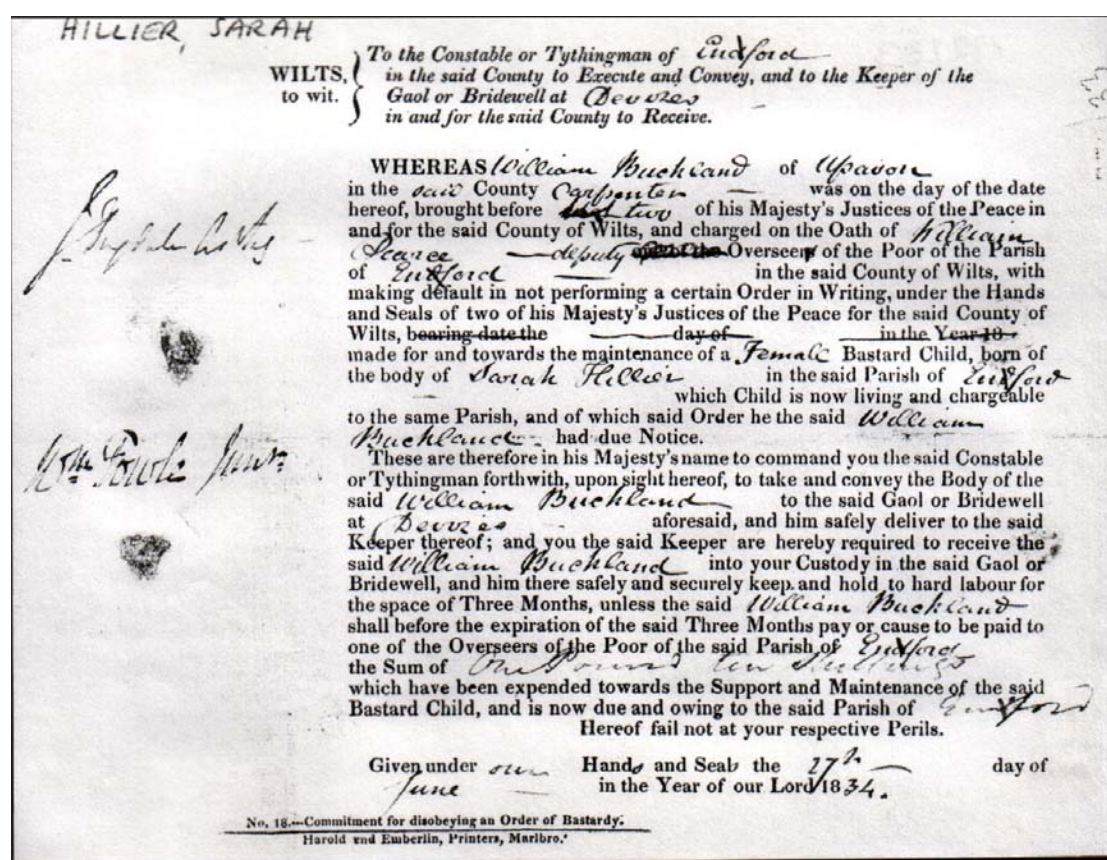 HILLIER, SARAH
To the Constable or Tythingman of Enxford
WILTS, in the said County to Execute and Convey, and to the Keeper of the
to wit. Gaol or Bridewell at Devizes
in and for the said County to Receive.
WHEREAS William Buckland of Upavon
in the said County Carpenter — was on the day of the date
hereof, brought before two of his Majesty's Justices of the Peace in
and for the said County of Wilts, and charged on the Oath of William
Pearce — deputy Overseer of the Poor of the Parish
of Enxford — in the said County of Wilts, with
making default in not performing a certain Order in Writing, under the Hands
and Seals of two of his Majesty's Justices of the Peace for the said County of
Wilts, bearing date the day of in the Year 18
made for and towards the maintenance of a Female Bastard Child, born of
the body of Sarah Hillier in the said Parish of Enxford
which Child is now living and chargeable
to the same Parish, and of which said Order he the said William
Buckland had due Notice.
These are therefore in his Majesty's name to command you the said Constable
or Tythingman forthwith, upon sight hereof, to take and convey the Body of the
said William Buckland to the said Gaol or Bridewell
at Devizes — aforesaid, and him safely deliver to the said
Keeper thereof; and you the said Keeper are hereby required to receive the
said William Buckland into your Custody in the said Gaol or
Bridewell, and him there safely and securely keep and hold to hard labour for
the space of Three Months, unless the said William Buckland
shall before the expiration of the said Three Months pay or cause to be paid to
one of the Overseers of the Poor of the said Parish of Enxford
the Sum of One Pound ten Shillings
which have been expended towards the Support and Maintenance of the said
Bastard Child, and is now due and owing to the said Parish of Enxford
Hereof fail not at your respective Perils.
Given under our Hands and Seals the 27th — day of
June in the Year of our Lord 1834.
Wm Fowle Junr
No. 18.—Commitment for disobeying an Order of Bastardy.
Harold and Emberlin, Printers, Marlbro.'